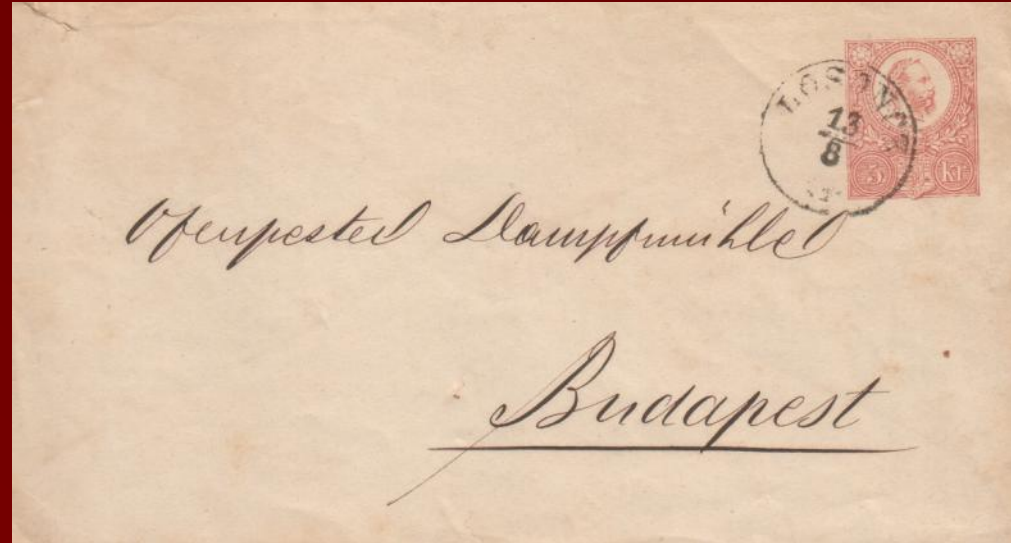 LOSONCZ
13
8
5 kr
Ofenpester Dampfmühle
Budapest